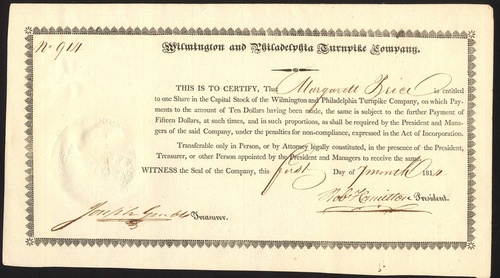 No 914
Wilmington and Philadelphia Turnpike Company.
THIS IS TO CERTIFY, That Margarett Brice is entitled
to one Share in the Capital Stock of the Wilmington and Philadelphia Turnpike Company, on which Pay-
ments to the amount of Ten Dollars having been made, the same is subject to the further Payment of
Fifteen Dollars, at such times, and in such proportions, as shall be required by the President and Mana-
gers of the said Company, under the penalties for non-compliance, expressed in the Act of Incorporation.
Transferable only in Person, or by Attorney legally constituted, in the presence of the President,
Treasurer, or other Person appointed by the President and Managers to receive the same.
WITNESS the Seal of the Company, this first Day of 7 month 1814
Robt Hamilton President.
Joseph Treasurer.